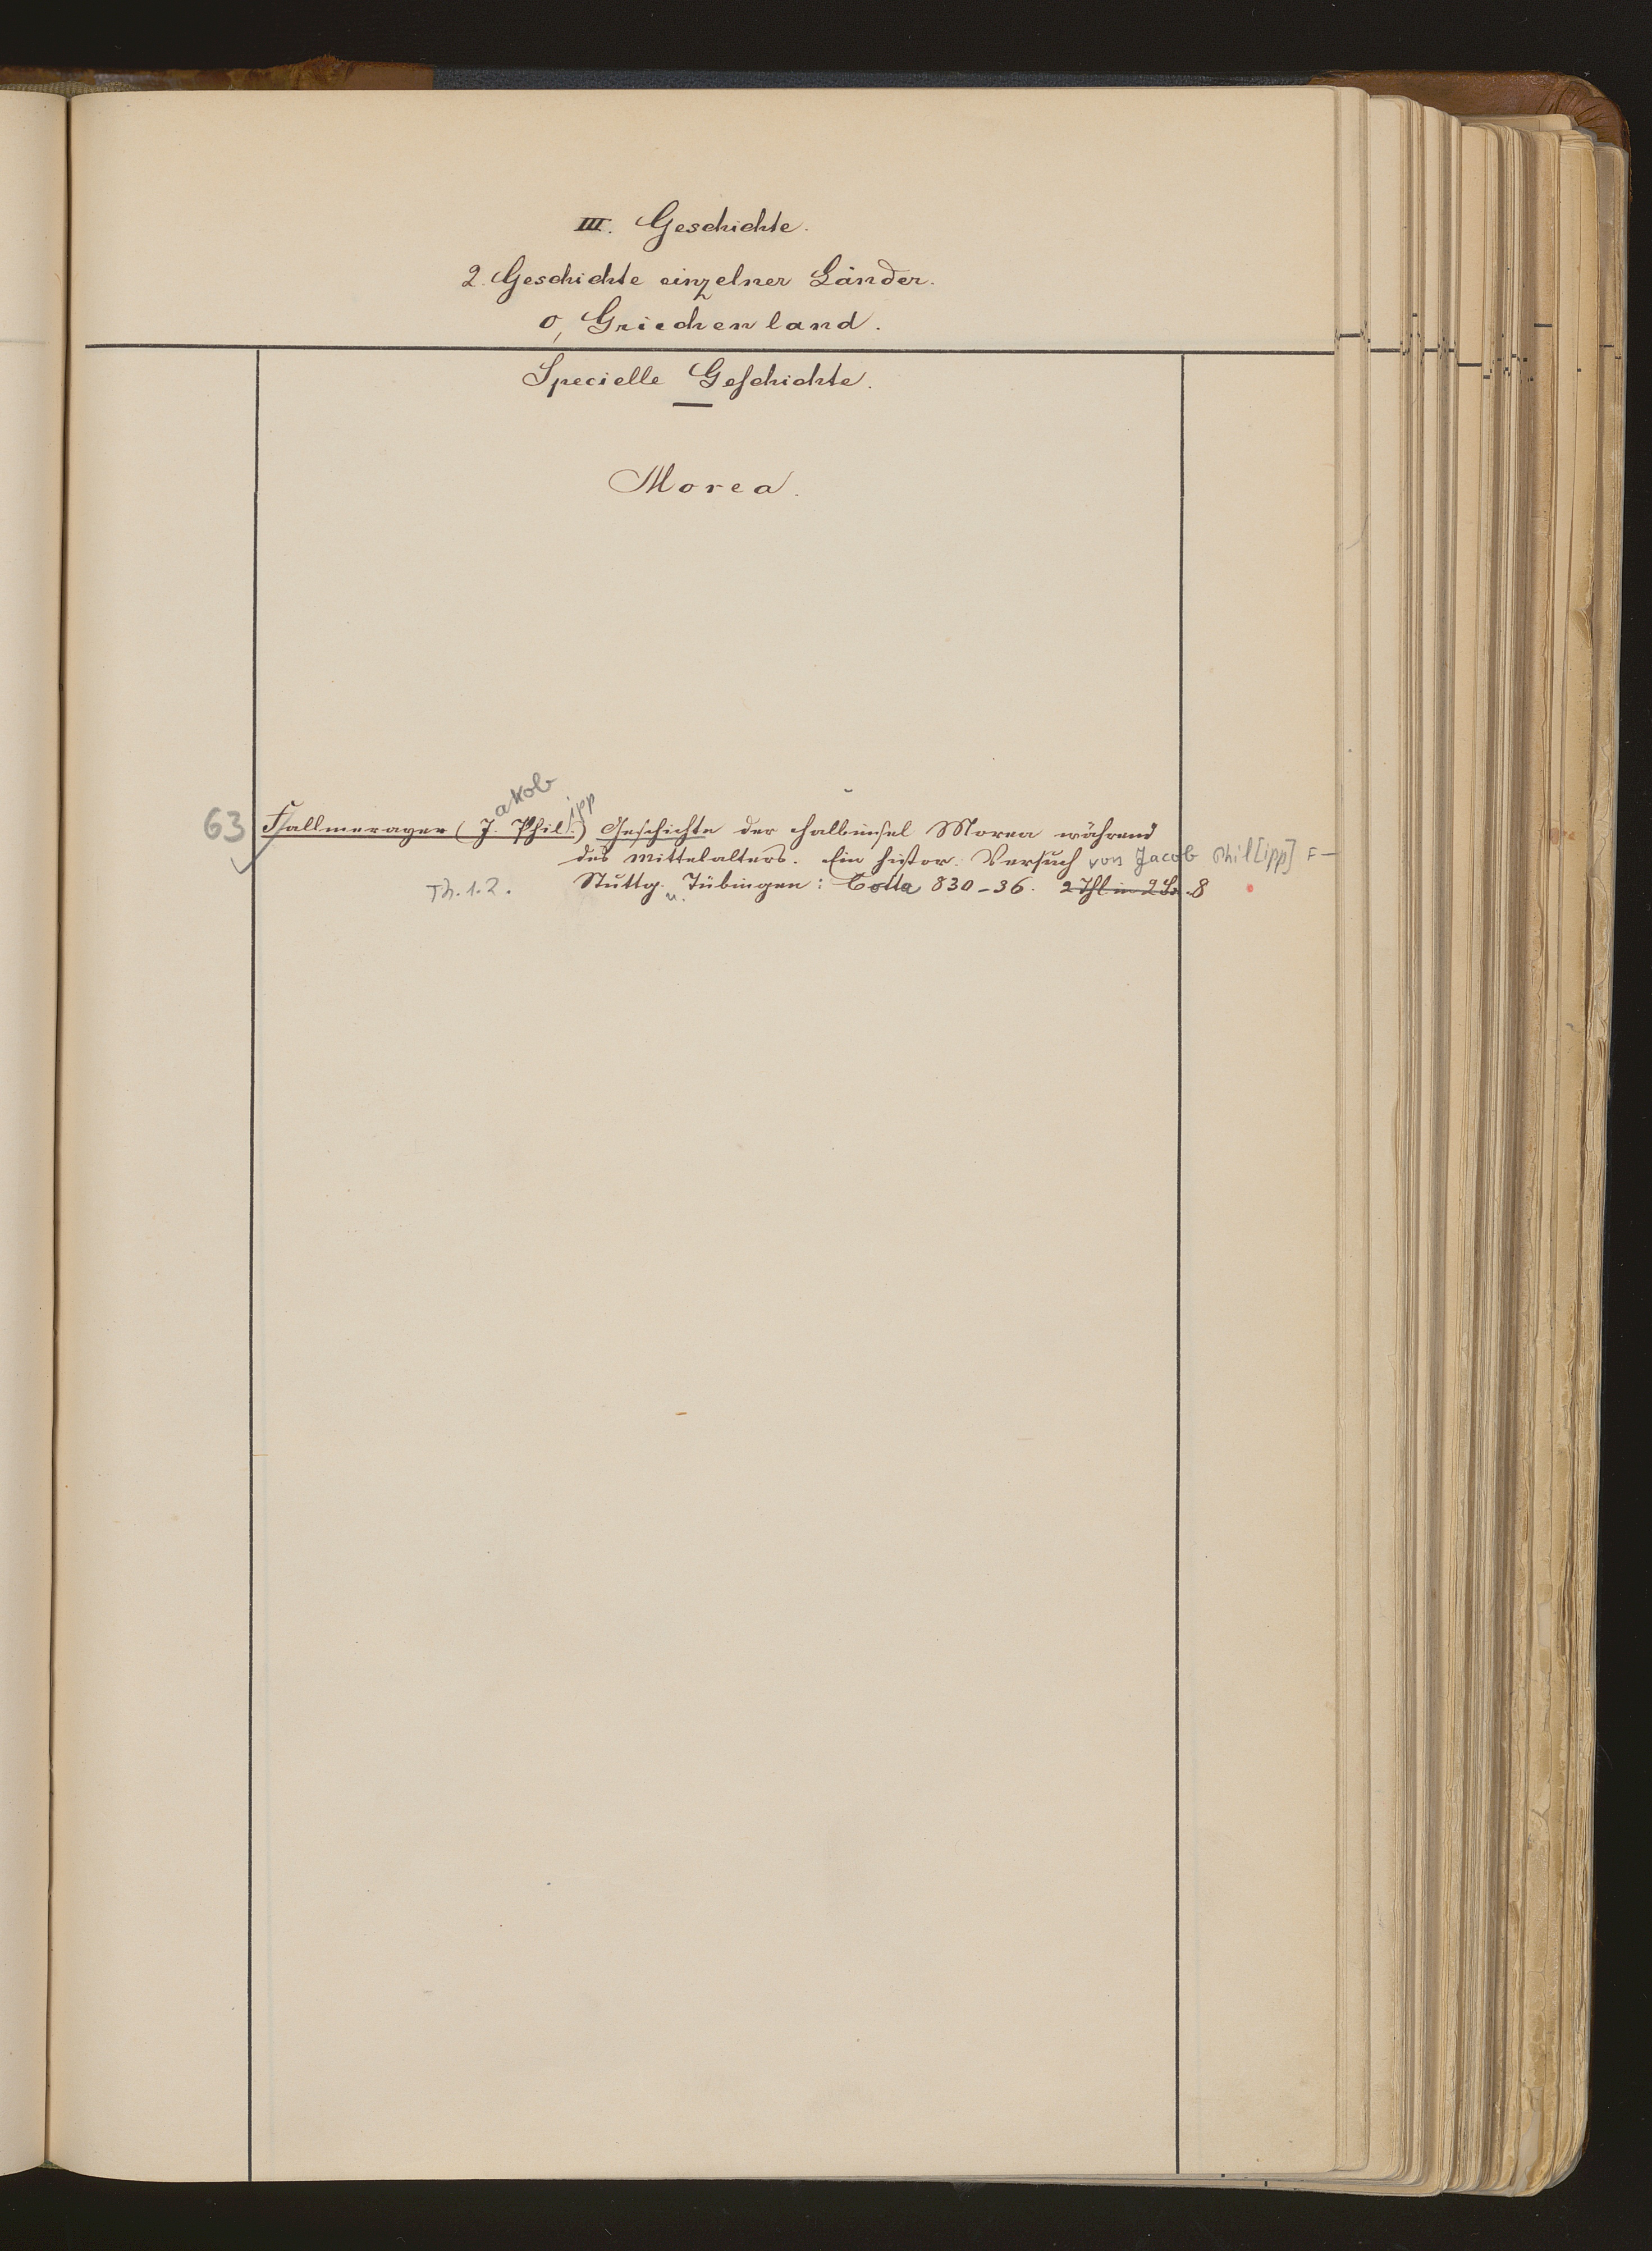 III. Geschichte.
2. Geschichte einzelner Länder.
o, Griechenland.
Specielle Geschichte.
Morea.
63 Fallmerayer (Jakob Philipp.) Geschichte der Halbinsel Morea während
des Mittelalters. Ein histor. Versuch von Jacob Phil[ipp] F–
Th. 1.2. Stuttg. u. Tübingen: Cotta 830–36. 2 Thl in 2 Bd. 8